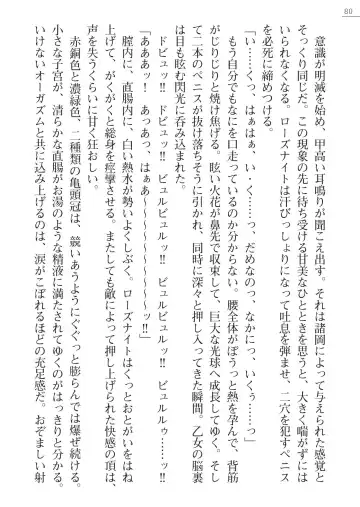 80
意識が明滅を始め、甲高い耳鳴りが聞こえ出す。それは諸岡によって与えられた感覚と
そっくり同じだ。この現象の先に待ち受ける甘美なひとときを思うと、大きく喘がずには
いられなくなる。ローズナイトは汗びっしょりになって吐息を弾ませ、二穴を犯すペニス
を必死に締めつける。
「い……くっ、はぁはぁ、い、く……っ、だめなのっ、なかにっ、いくぅ……っ」
もう自分でもなにを口走っているのか分からない。腰全体がぼうっと熱を孕んで、背筋
がじりじりと焼け焦げる。眩い火花が鼻先で収束して、巨大な光球へ成長してゆく。そし
て二本のペニスが抜け落ちそうに引かれ、同時に深々と押し入った瞬間。乙女の脳裏
は目も眩む閃光に呑み込まれた。
ドビュッ!! ドビュルッ!! ビュルビュルッ!! ビュルルゥ……ッ!!
「あああッ！ あっあっ、はぁあ〜〜〜〜〜〜〜ッ!!」
膣内に、直腸内に、白い熱水が勢いよくしぶく。ローズナイトはくっとおとがいを跳ね
上げて、がくがくと総身を痙攣させる。またしても敵によって押し上げられた快感の頂は、
声を失うくらいに甘く狂おしい。
赤銅色と濃緑色、二種類の亀頭冠は、競いあうようにぐぐっと膨らんでは爆ぜ続ける。
小さな子宮が、清らかな直腸がお湯のような精液に満たされてゆくのがはっきりと分かる。
いけないオーガズムと共に込み上げるのは、涙がこぼれるほどの充足感だ。おぞましい射